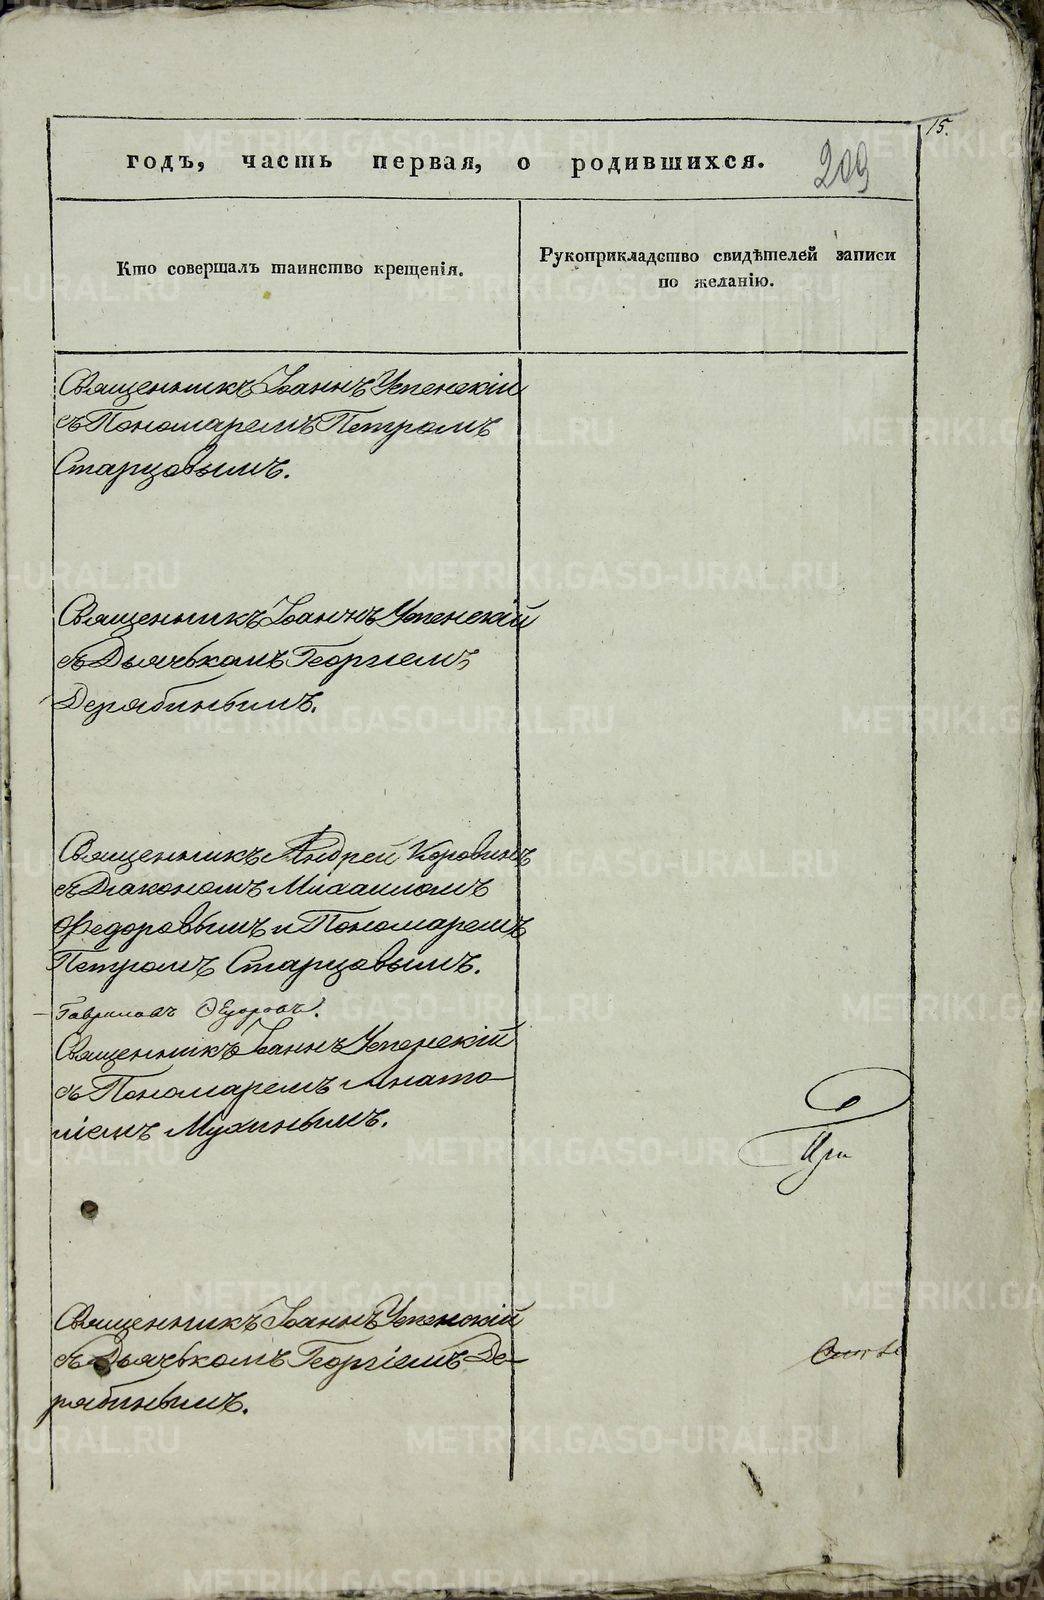 15.
годъ, часть первая, о родившихся. 209
Кто совершалъ таинство крещенія.
Рукоприкладство свидѣтелей записи
по желанію.
Священникъ Іоаннъ Успенскій
съ Пономаремъ Петромъ
Старцовымъ.
Священникъ Іоаннъ Успенскій
съ Дьячькомъ Георгіемъ
Дерябинымъ.
Священникъ Андрей Коровинъ
съ Діакономъ Михаиломъ
Федоровымъ и Пономаремъ
Петромъ Старцовымъ.
Священникъ Іоаннъ Успенскій
съ Пономаремъ Анато-
ліемъ Мухинымъ.
При
Священникъ Іоаннъ Успенскій
съ Дьячькомъ Георгіемъ Де-
рябинымъ.
METRIKI.GASO-URAL.RU